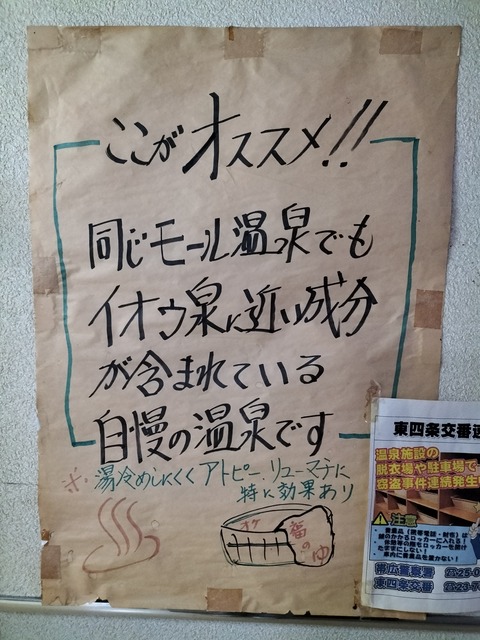 ここがオススメ!!
同じモール温泉でも
イオウ泉に近い成分
が含まれている
自慢の温泉です
※湯冷めしにくく アトピー リューマチに
特に効果あり
オケ
福のゆ
東四条交番速
温泉施設の
脱衣場や駐車場で
窃盗事件連続発生
注意
帯広警察署 ☎25-0
東四条交番 ☎23-